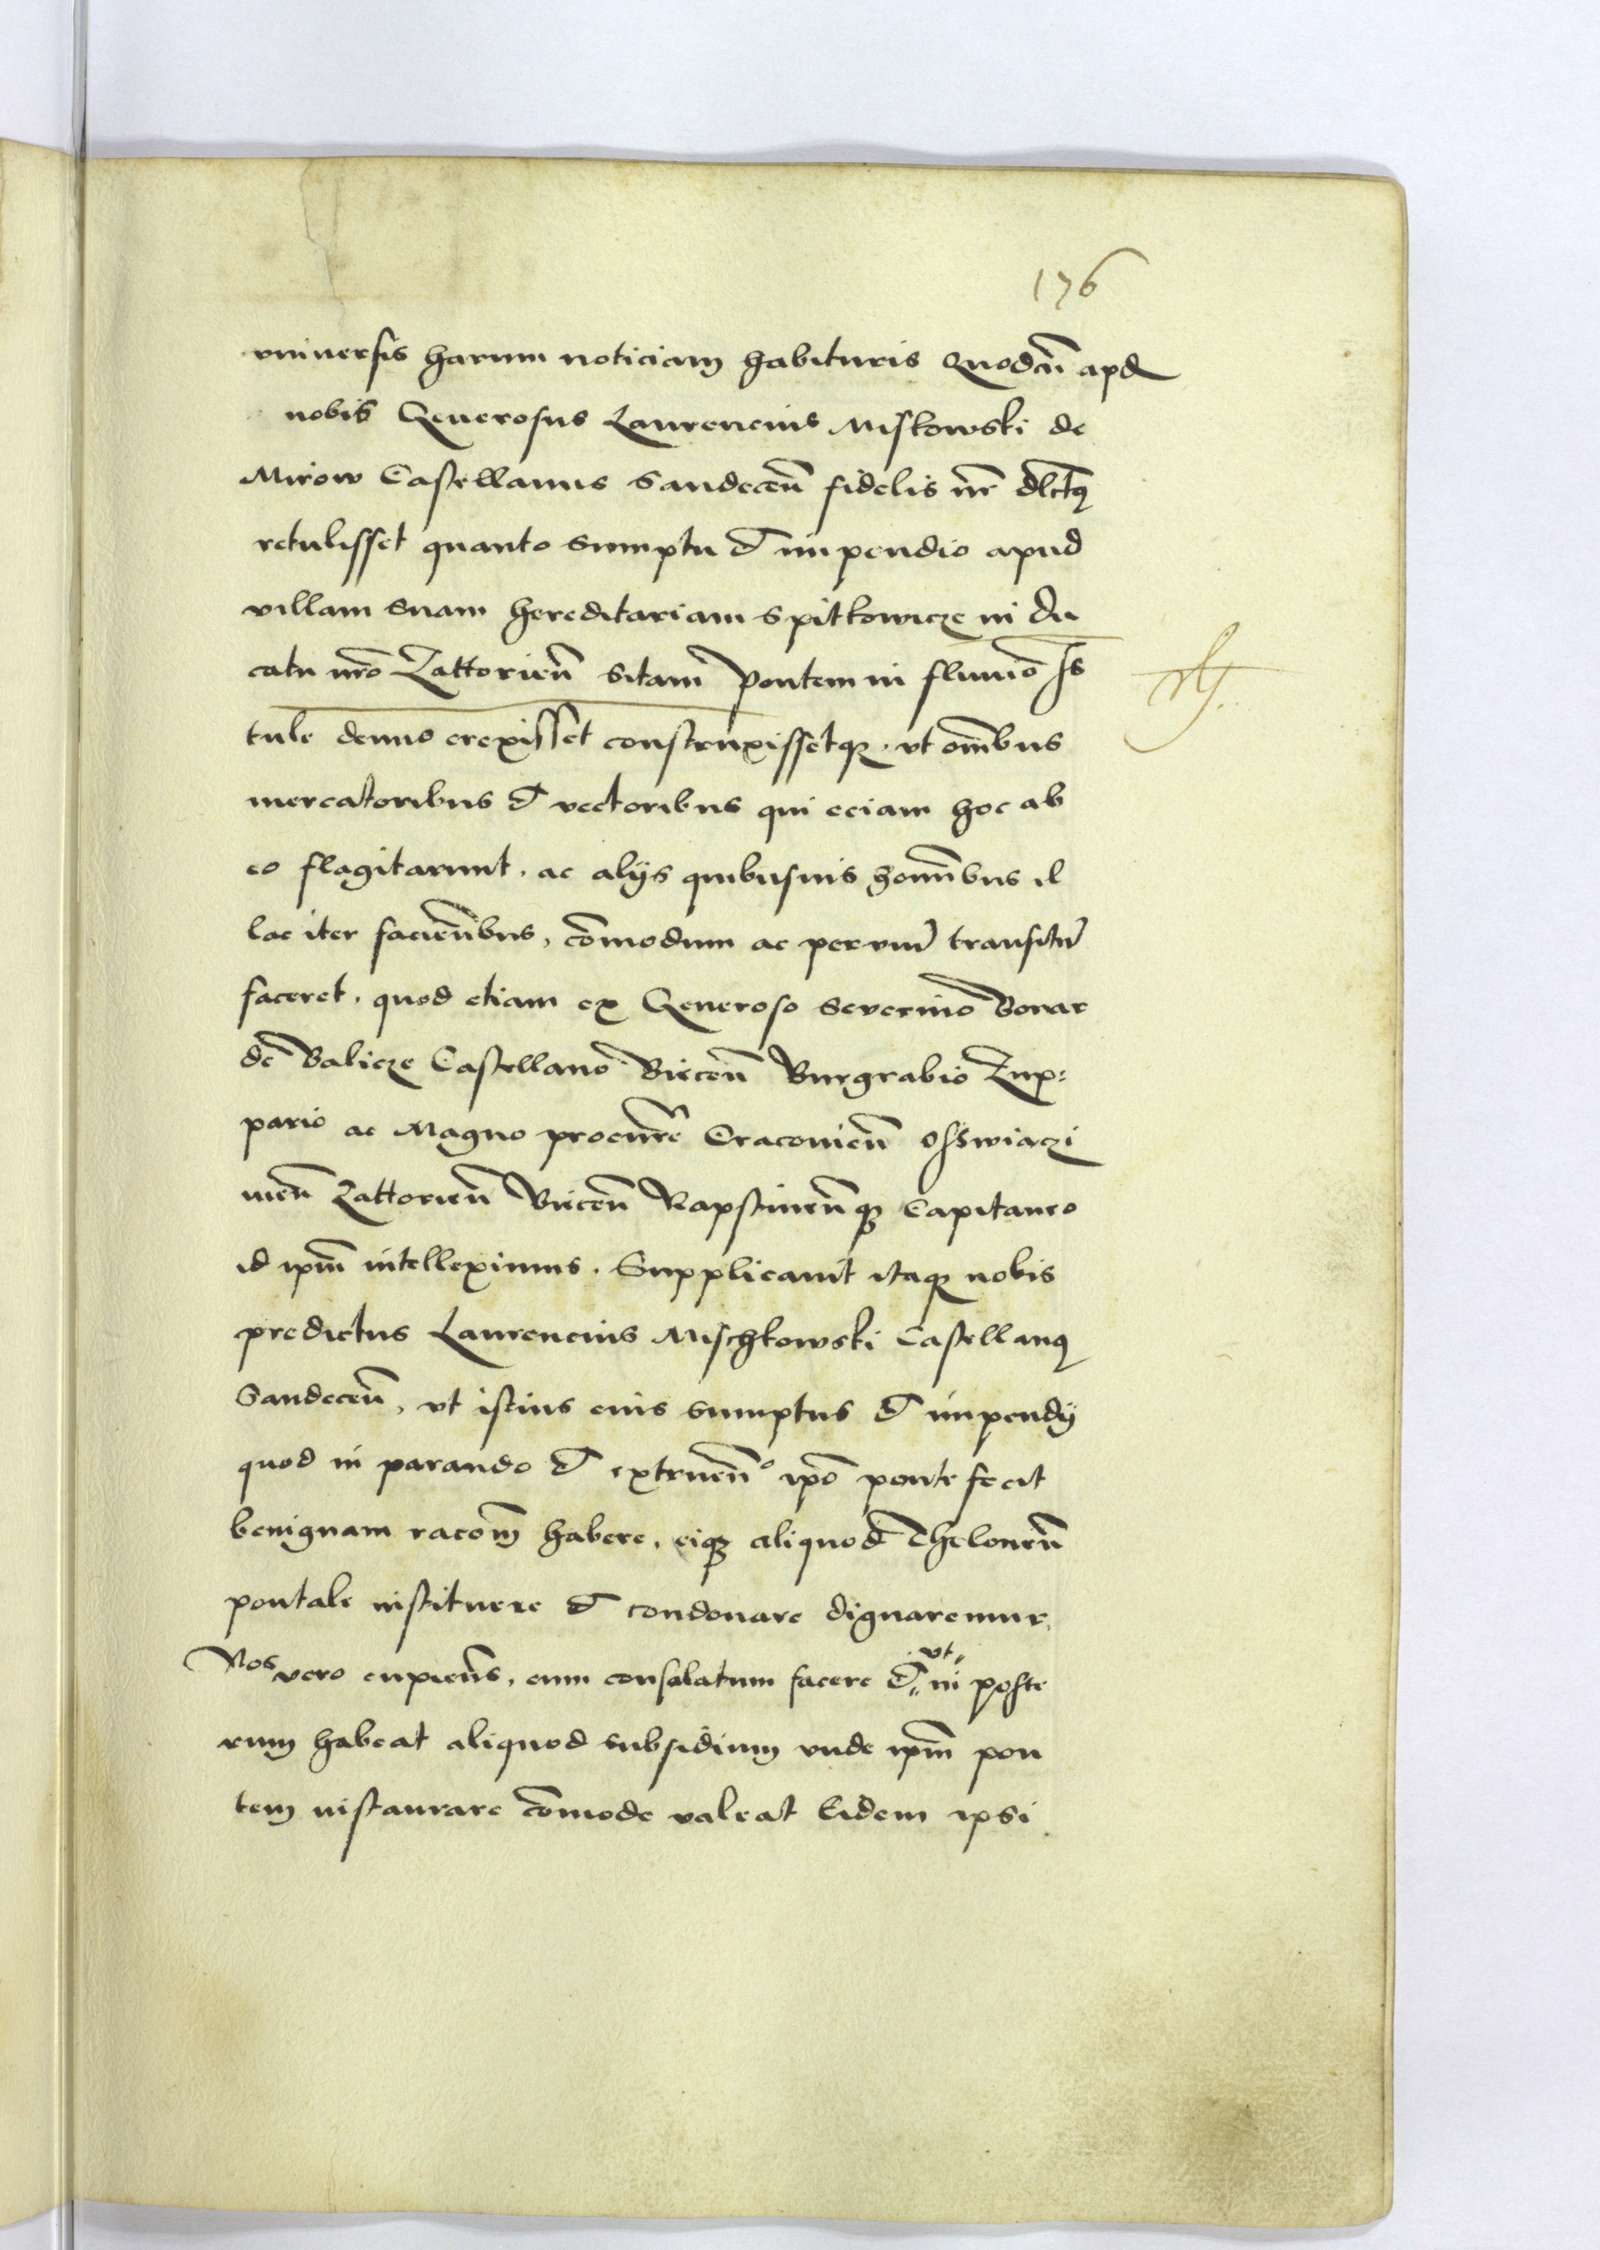 176
vniuersis harum noticiam habituris Quod cū apd
nobis Generosus Laurencius Miskowski de
Mirow Castellanus Sandeceñ fidelis nr̄ dlctꝰ
retulisset quanto sumptu et impendio apud
villam suam hereditariam Spitkowicze in du
catu nr̄o Zattorieñ sitam pontem in fluuio Is
tule denuo erexisset construxissetqꝫ. vt om̄ibus
mercatoribus et vectoribus qui eciam hoc ab
eo flagitarunt. ac alijs quibusuis homī̄bus il
lac iter facieñbus, cōmodum ac peruiū transitū
faceret. quod etiam ex Generoso Seuerino Bonar
de Balicze Castellano Bieceñ Burgrabio Zup:
pario ac Magno procur̄re Cracouieñ Osswiaczi
meñ Zattorieñ Bieceñ Rapstineñqꝫ Capitaneo
id ipm̄ intelleximus. Supplicauit itaqꝫ nobis
predictus Laurencius Mischkowski Castellanꝰ
Sandeceñ, vt istius eius sumptus et impendij
quod in parando et extrueñº ip̄o ponte fecit
benignam racōm̄ habere, eiqꝫ aliquod Theloneū
pontale instituere et condonare dignaremur.
Nos vero cupieñs, eum consolatum facere et vt in poste
rum habeat aliquod subsidium vnde ipm̄ pon
tem instaurare cōmode valeat Eidem ipsi